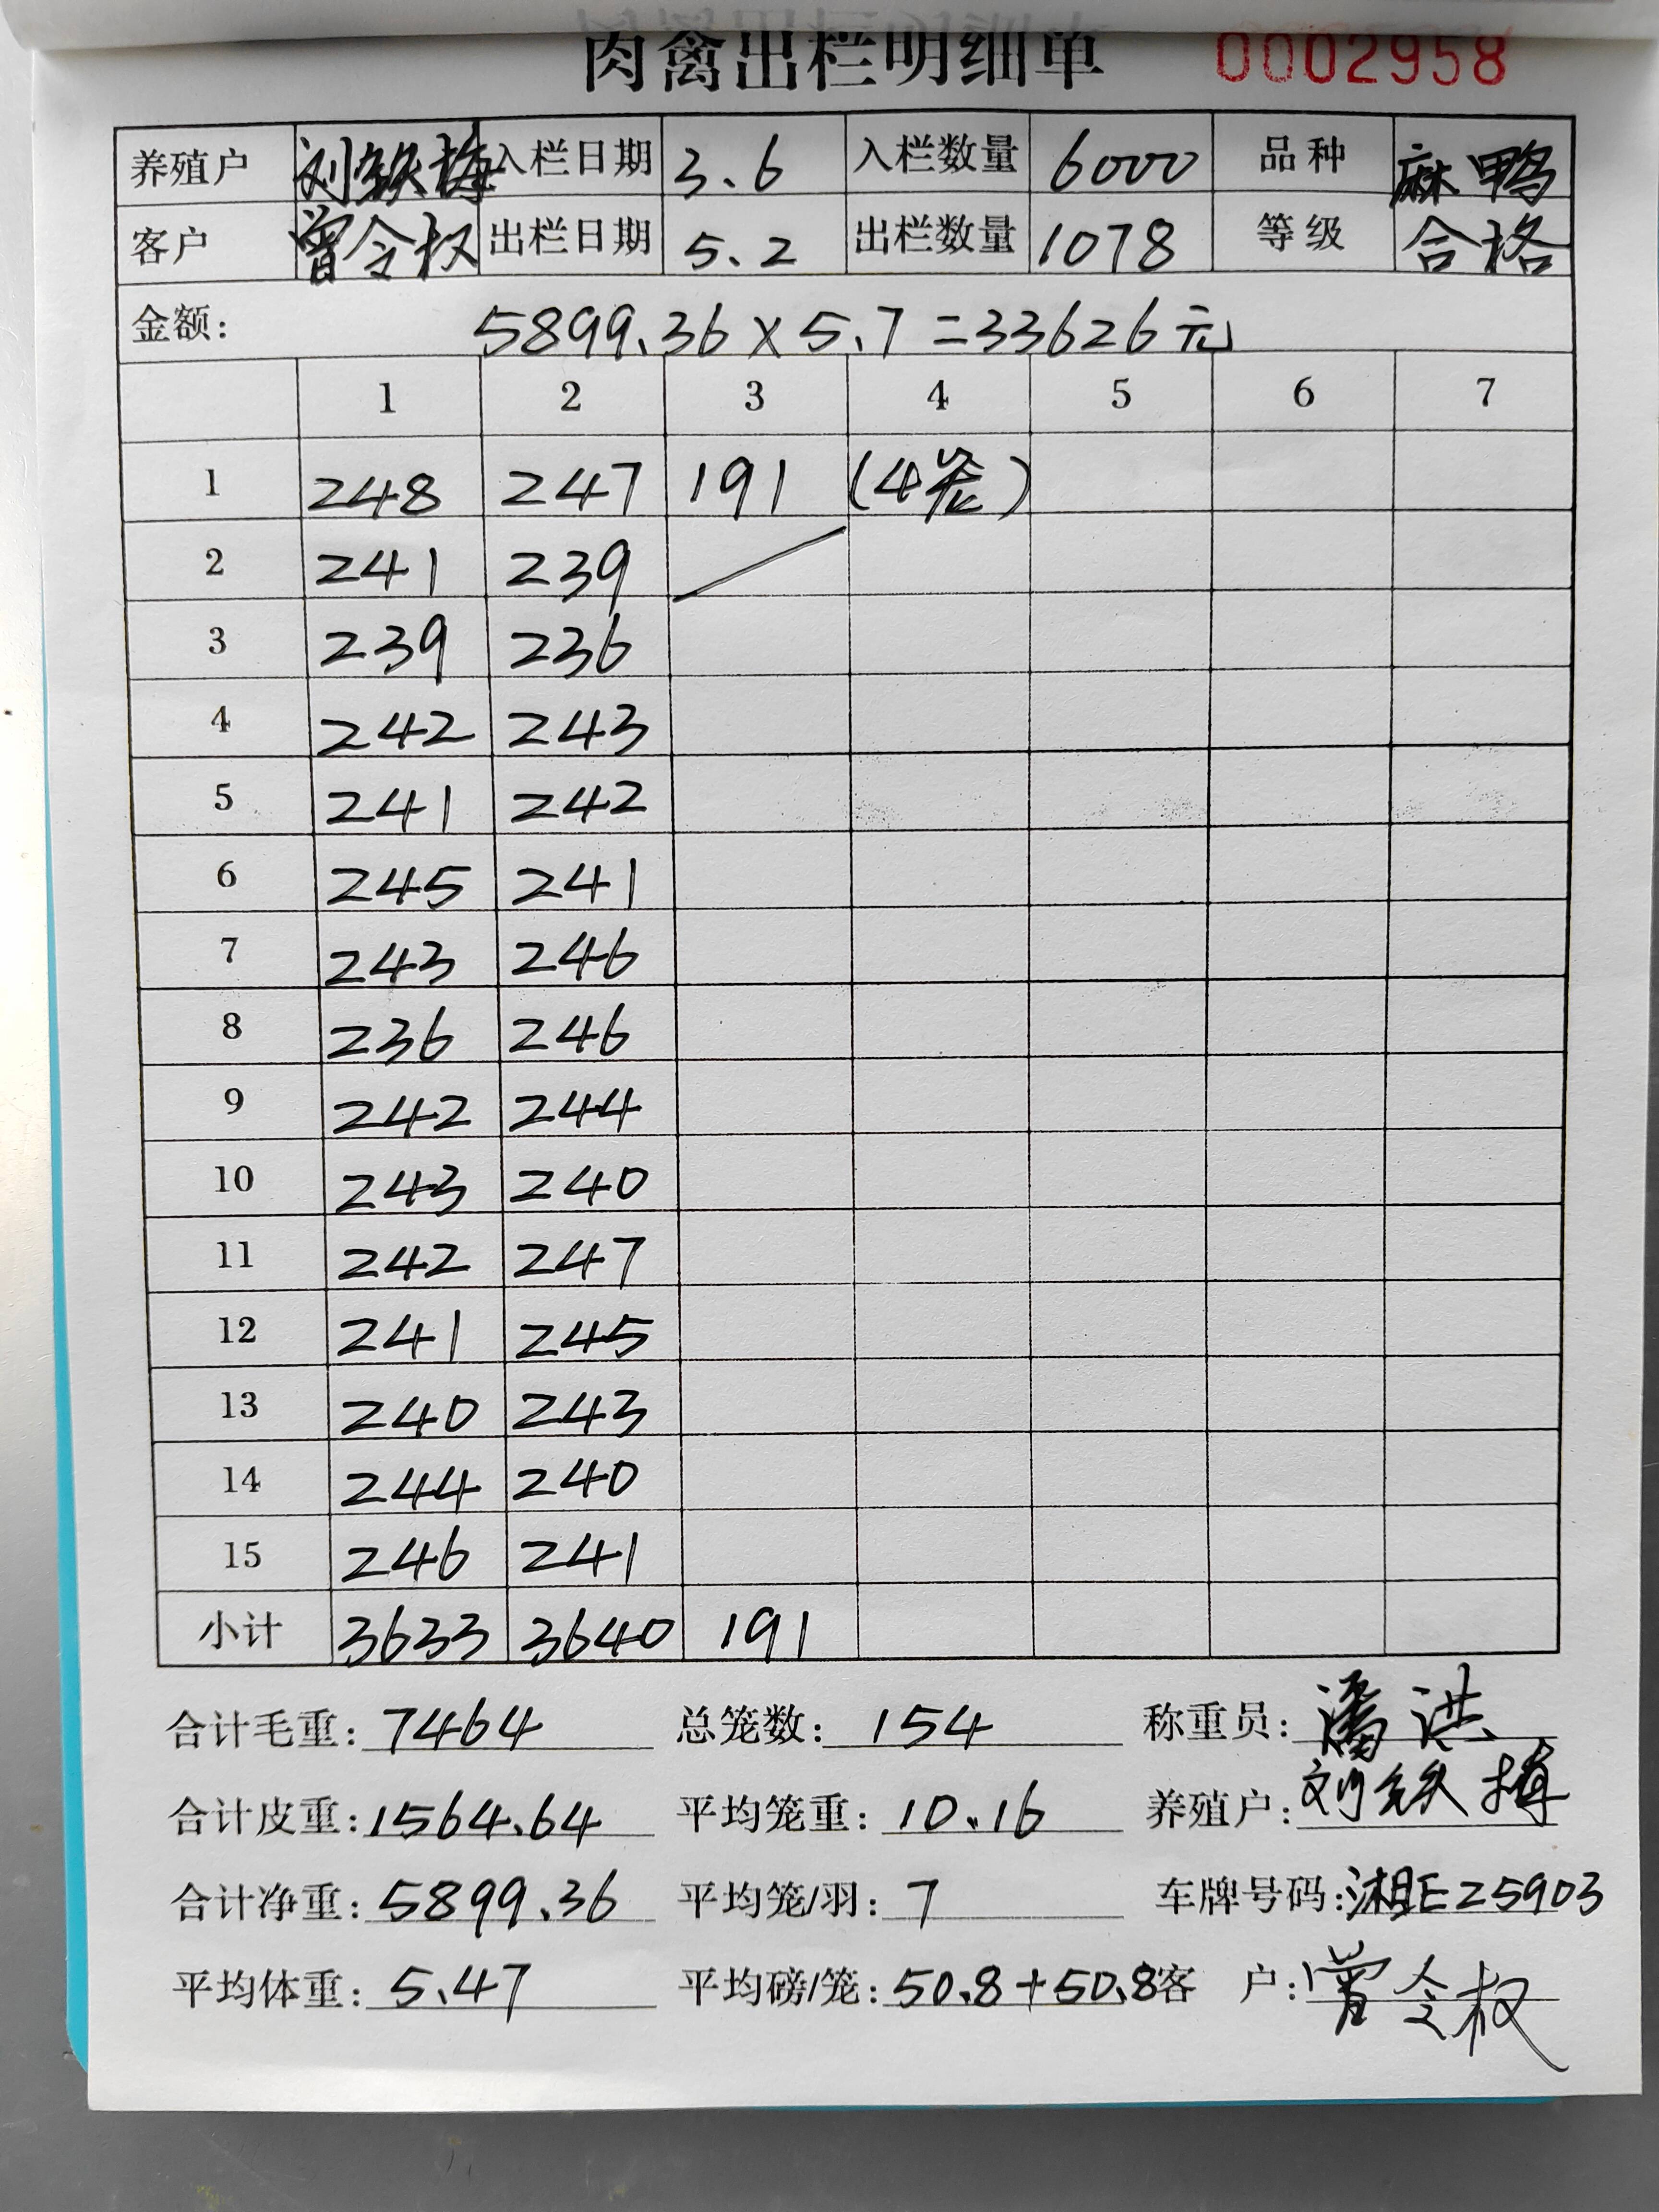 肉禽出栏明细单 0002958
养殖户 刘铁梅 入栏日期 3.6 入栏数量 6000 品种 麻鸭
客户 曾令权 出栏日期 5.2 出栏数量 1078 等级 合格
金额: 5899.36×5.7=33626元
1 2 3 4 5 6 7
1 248 247 191 (4笼)
2 241 239
3 239 236
4 242 243
5 241 242
6 245 241
7 243 246
8 236 246
9 242 244
10 243 240
11 242 247
12 241 245
13 240 243
14 244 240
15 246 241
小计 3633 3640 191
合计毛重: 7464 总笼数: 154 称重员: 潘洪
合计皮重: 1564.64 平均笼重: 10.16 养殖户: 刘铁梅
合计净重: 5899.36 平均笼/羽: 7 车牌号码: 湘EZ5903
平均体重: 5.47 平均磅/笼: 50.8+50.8 客户: 曾令权